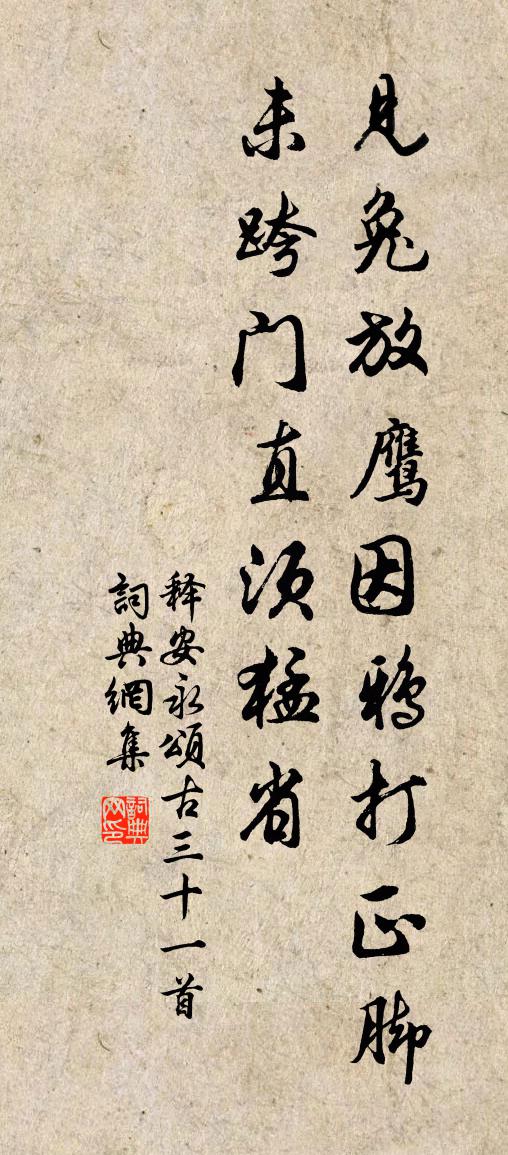 见兔放鹰因鸦打正脚
未跨门直须猛省
释安永颂古三十一首
詞典網集
詞典网印